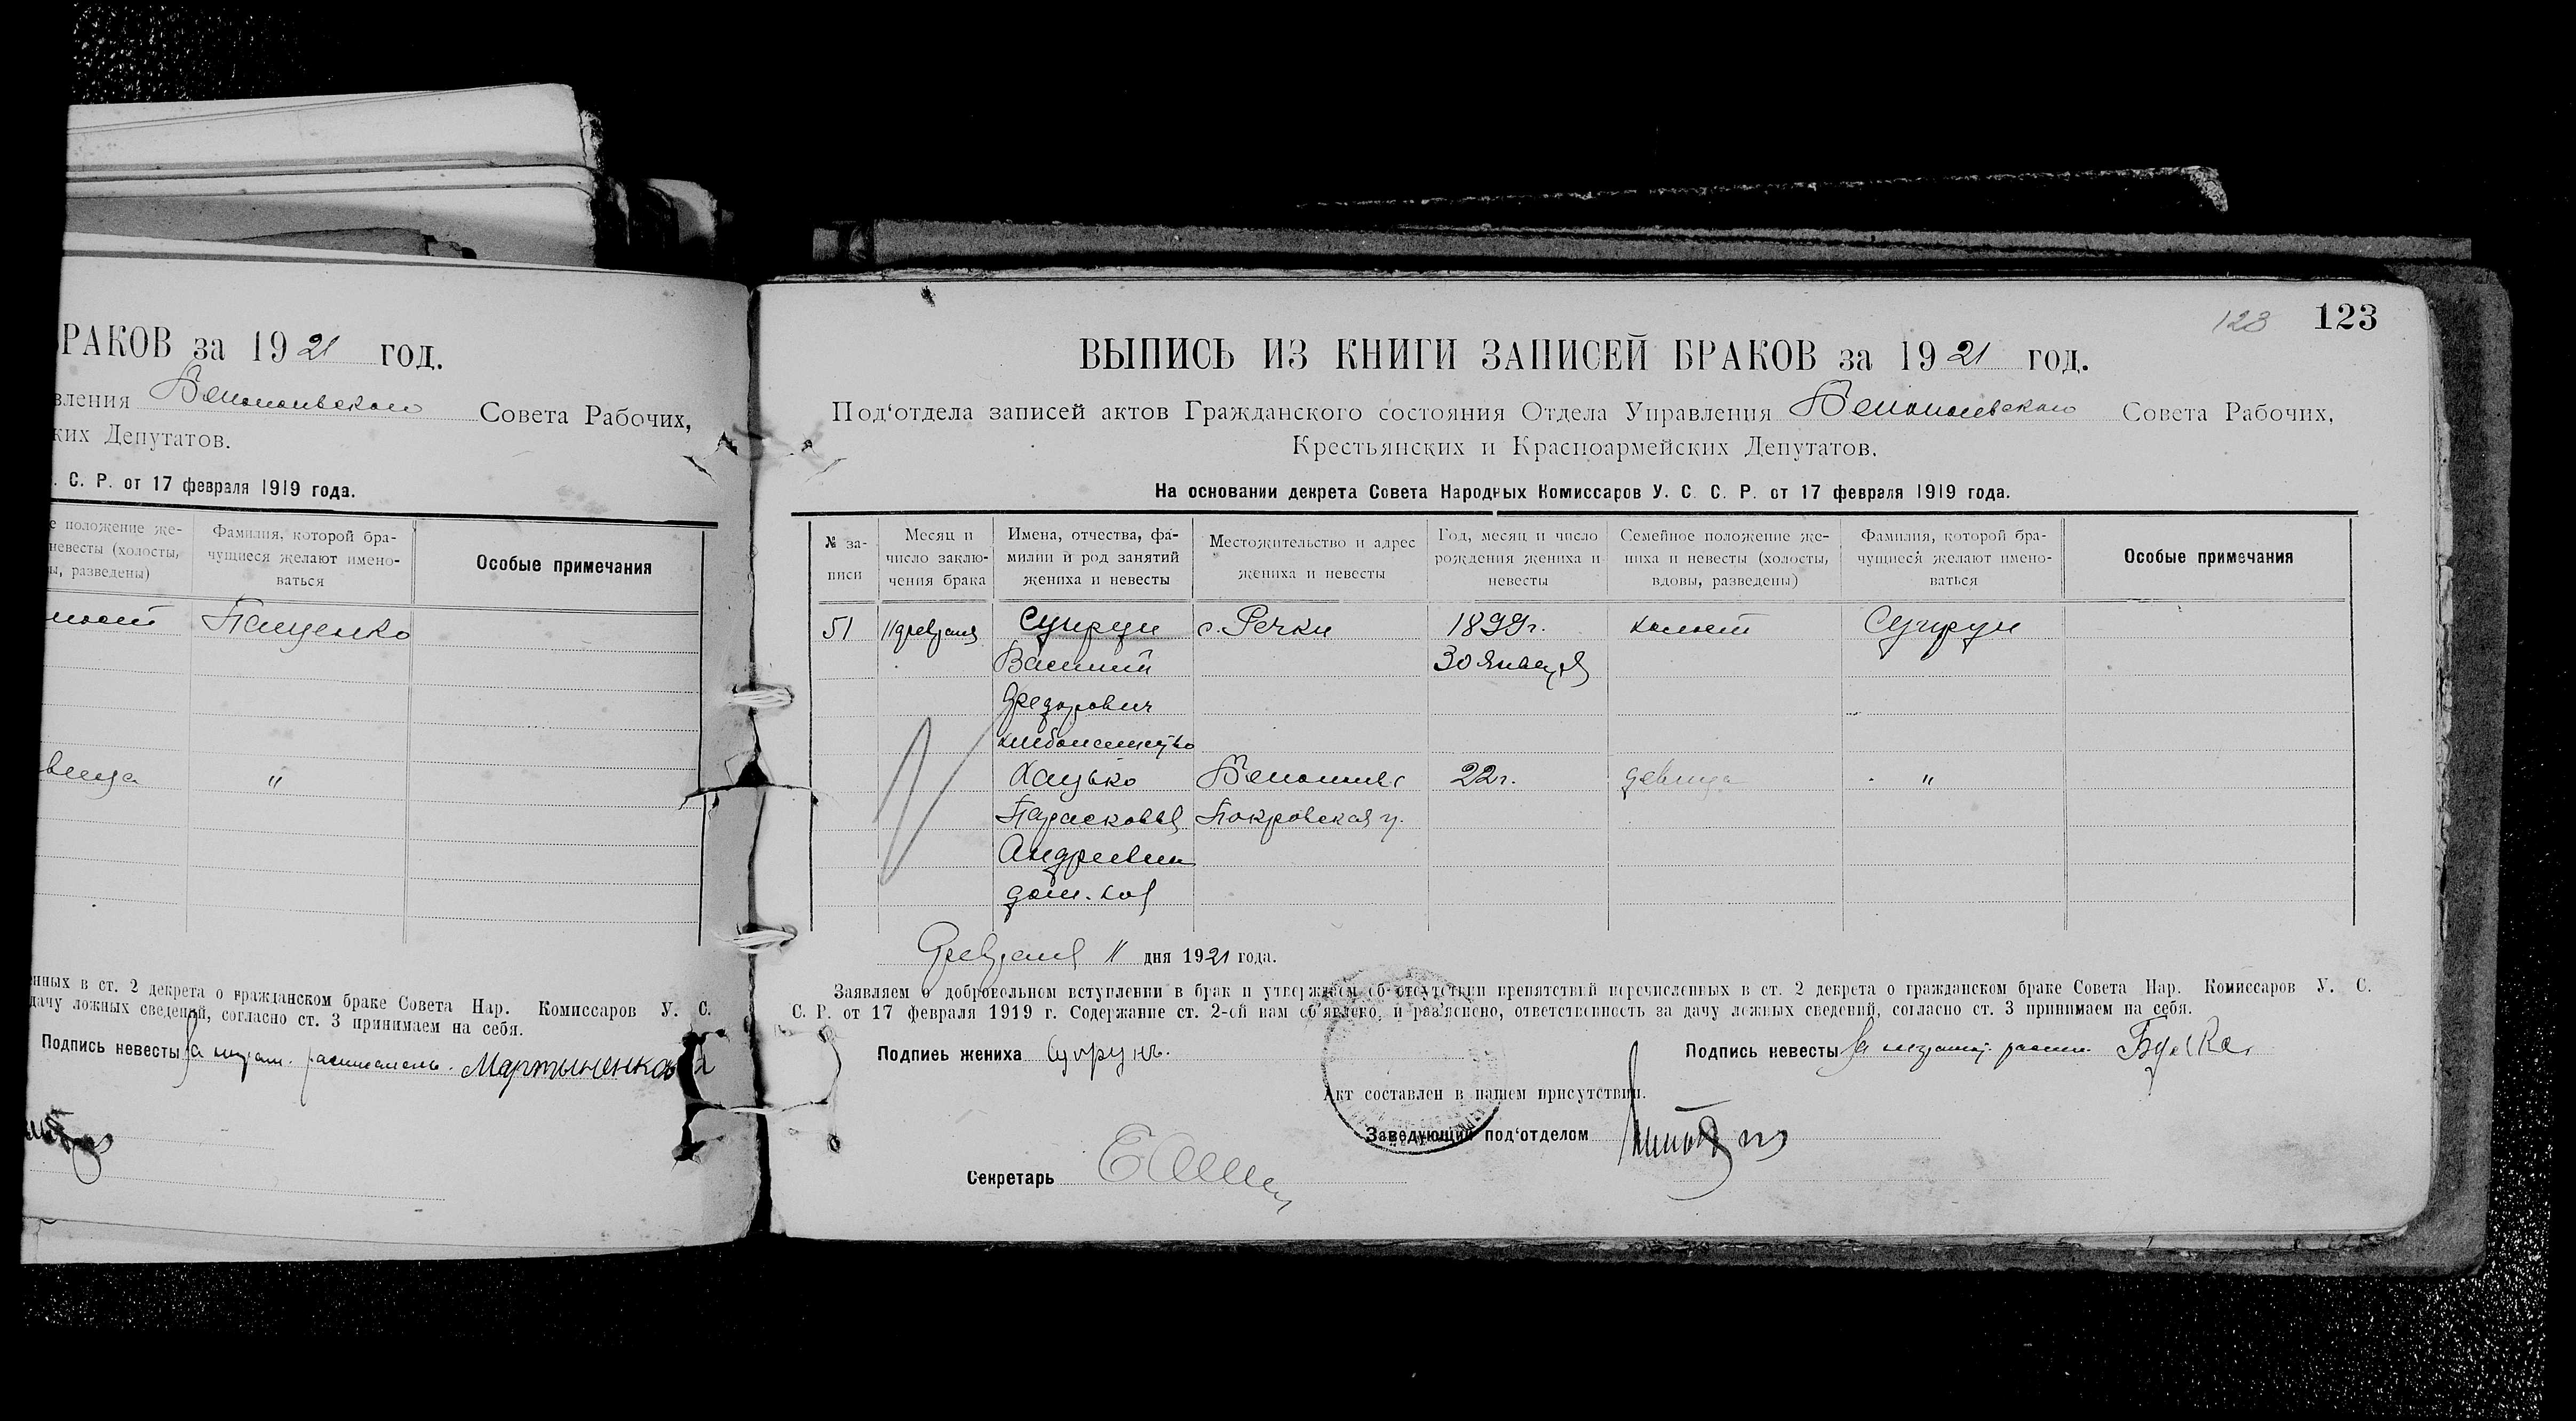 РАКОВ за 1921 год.
вления Белопольского Совета Рабочих,
ких Депутатов.
. С. Р. от 17 февраля 1919 года.
е положение же-
невесты (холосты,
ы, разведены)
Фамилия, которой бра-
чущиеся желают имено-
ваться
Особые примечания
лост Пащенко
вица "
нных в ст. 2 декрета о гражданском браке Совета Нар. Комиссаров У. С.
дачу ложных сведений, согласно ст. 3 принимаем на себя.
Подпись невесты За неграм. расписалась Мартыненко
123 123
ВЫПИСЬ ИЗ КНИГИ ЗАПИСЕЙ БРАКОВ за 1921 год.
Под‘отдела записей актов Гражданского состояния Отдела Управления Белопольского Совета Рабочих,
Крестьянских и Красноармейских Депутатов.
На основании декрета Совета Народных Комиссаров У. С. С. Р. от 17 февраля 1919 года.
№ за-
писи
Месяц и
число заклю-
чения брака
Имена, отчества, фа-
милии и род занятий
жениха и невесты
Местожительство и адрес
жениха и невесты
Год, месяц и число
рождения жениха и
невесты
Семейное положение же-
ниха и невесты (холосты,
вдовы, разведены)
Фамилия, которой бра-
чущиеся желают имено-
ваться
Особые примечания
51 11 февраля Супрун с. Речки 1899г. холост Супрун
Василий 30 января
Федорович
хлебопашество
Хацько Белополье 22г. девица "
Парасковья Покровская у.
Андреевна
дом. хоз
Февраля 11 дня 1921 года.
Заявляем о добровольном вступлении в брак и утверждаем об отсутствии препятствий перечисленных в ст. 2 декрета о гражданском браке Совета Нар. Комиссаров У. С.
С. Р. от 17 февраля 1919 г. Содержание ст. 2-ой нам об‘явлено, и раз‘яснено, ответственность за дачу ложных сведений, согласно ст. 3 принимаем на себя.
Подпись жениха Супрунъ. Подпись невесты За неграмот. распис.
Акт составлен в нашем присутствии.
Заведующий под‘отделом
Секретарь